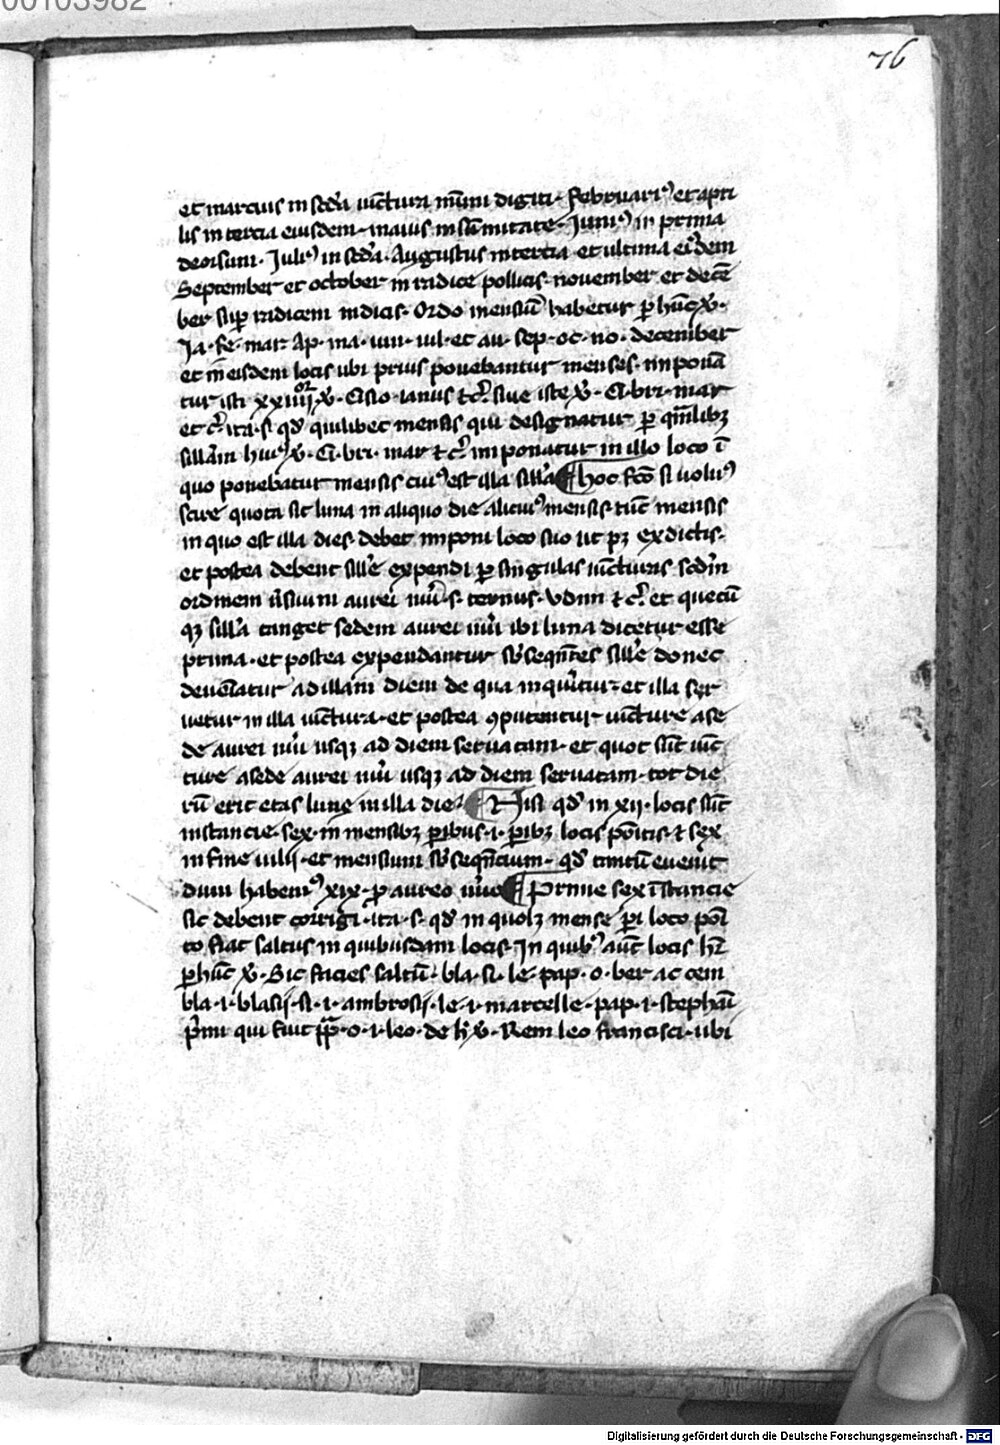 00103982
76
et marcius in scd'a iūctura mūmi digiti. Februari⁹ et apri
lis in tercia eiusdem. maius in sūmitate. Juni⁹ in prima
deorsum. Juli⁹ in scd'a. Augustus in tercia et ultima ei'dem
September et october in radice pollicis. november et decē
ber sup̱ radicem indicis. Ordo mensiū habetur ꝑ hūc v̓.
Ja. fe. mar. Ap. ma. iun. iul. et au. sep. oc. no. december
et in eisdem locis ubi prius ponebantur menses. imponā
tur isti xxiiii or v̓. Cisio. ianus ⁊c̄. siue iste v̓. Ci. bri. mar
et c̄. ita. s. qd̓ quilibet mensis qui designatur ꝑ qm̄libꝫ
sillām hui⁹ v̓. Ci. bri. mar ⁊ c̄. imponatur in illo loco ī
quo ponebatur mensis cui⁹ est illa sill'a ¶ hoc fcō si volu⁹
scire quota sit luna in aliquo die alicui⁹ mensis. tūc mensis
in quo est illa dies. debet imponi loco suo ut pꝫ ex dictis.
et postea debent sill'e expendi ꝑ singulas iūcturas scd'm
ordinem ūsuum aurei nūi. s. ternus. vdnn ⁊ c̄. et quecū
qꝫ sill'a tanget sedem aurei nūi ibi luna dicetur esse
prima. et postea expendantur sb̓seqn̄tes sill'e donec
deueīatur ad illām diem de qua inquīritur. et illa ser
uetur in illa iūctura. et postea ꝯputentur iūcture a se
de aurei nūi usqꝫ ad diem seruatam. et quot sūt iūc
ture a sede aurei nūi usqꝫ ad diem seruatam. tot die
rū erit etas lune in illa die. ¶ Nisi qd̓ in xii. locis sūt
instancie. sex. in mensibꝫ ꝑibus. i. ꝑibꝫ locis pōitis. ⁊ sex
in fine iulii. et mensium sb̓seqn̄cium. qd̓ tantū euenit
dum habem⁹ xix. ꝓ aureo nūo ¶ Prime sex īstancie
sic debent corrigi. ita. s. qd̓ in quolꝫ mense ꝑi loco pōi
to fiat saltus in quibusdam locis. In quib⁹ aūt locis hꝫ
ꝑ hūc v̓. Sic facies saltū. bla. si. le. pap. o. ber ac cem
bla. i. blasii. si. i. ambrosii. le. i. marcelle. pap. i. stephāi
pͥmi qui fuit pp̄. o. i. leo. de h̓ v̓. Rem leo francisci. ubi
Digitalisierung gefördert durch die Deutsche Forschungsgemeinschaft - DFG